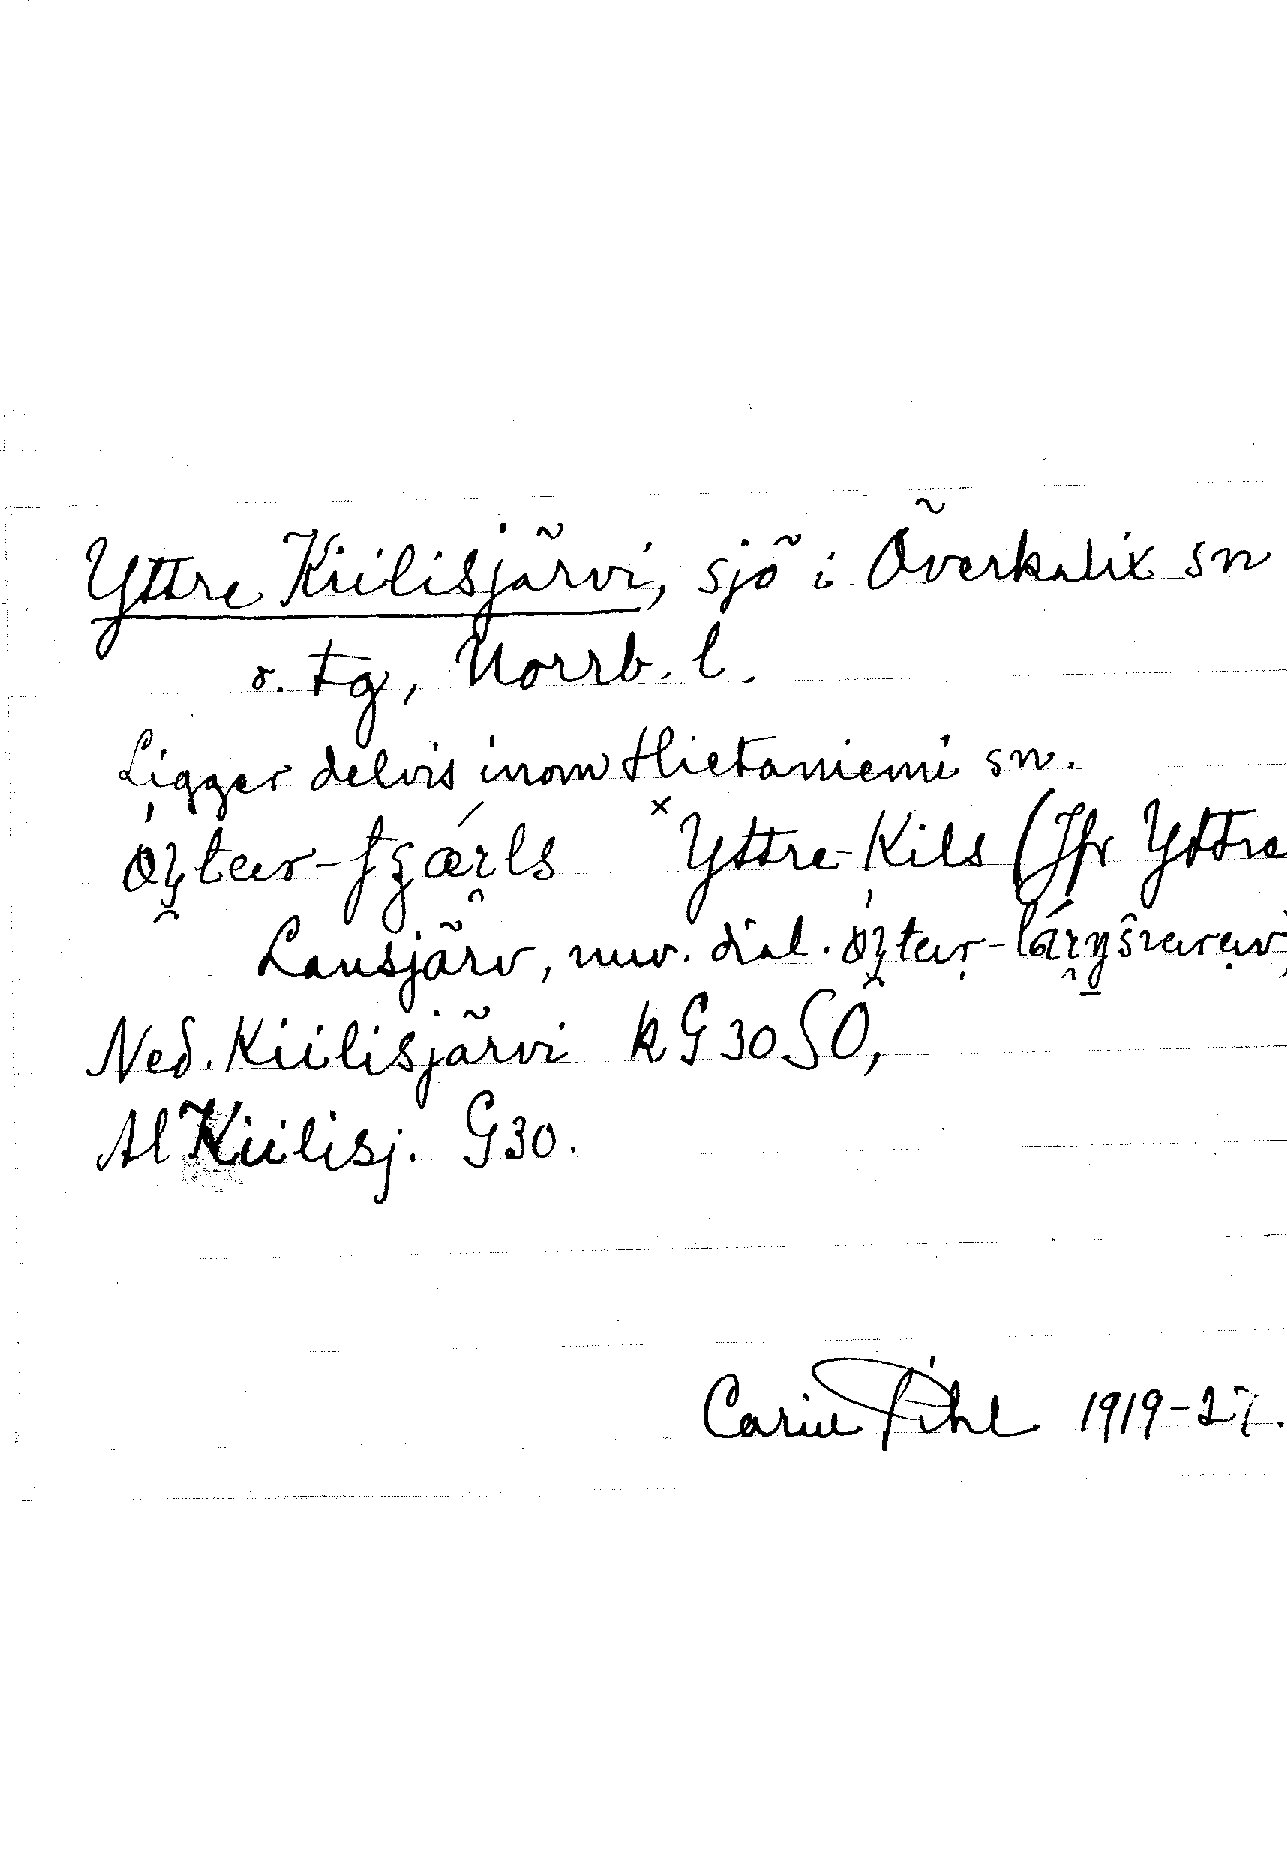 Yttre Kiilisjärvi, sjö i Överkalix sn
o. tg, Norrb. l.
Ligger delvis inom Hietaniemi sn.
×Yttre-Kils (Jfr Yttre
Lansjärv, nuv. dial.
Ned. Kiilisjärvi kG30SO,
Al Kiilisj. G30.
Carin Pihl 1919-27.